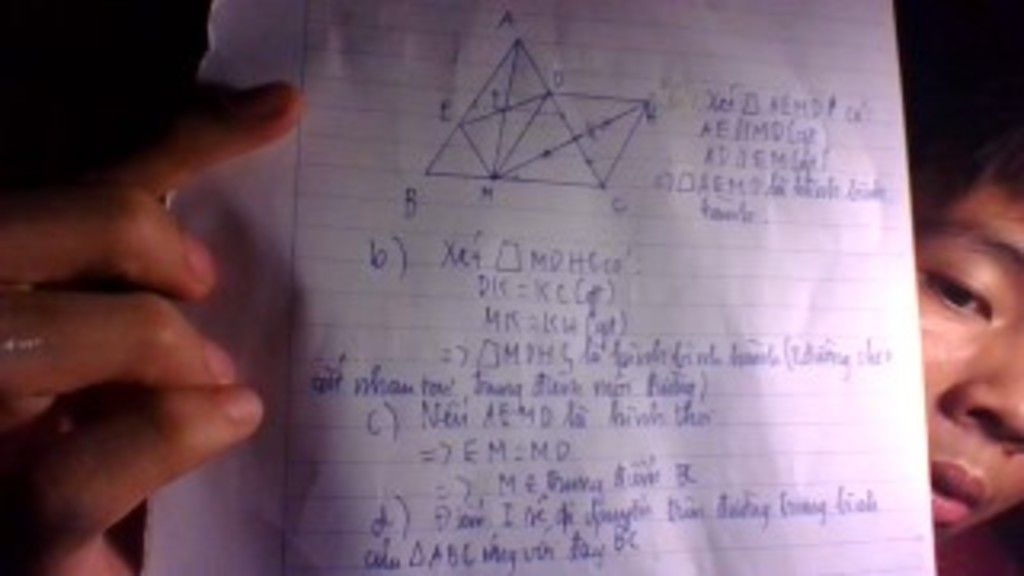 A
D
E
I
H
K
B
M
C
Xét □ AEMD có:
AE // MD (gt)
AD // EM (gt)
=> □ AEMD là hình bình
hành.
b) Xét □ MDHC có:
DK = KC (gt)
MK = KH (gt)
=> □ MDHC là hình bình hành (2 đường chéo
cắt nhau tại trung điểm mỗi đường)
c) Nếu AEMD là hình thoi
=> EM = MD
=> M là trung điểm
d) Điểm I sẽ di chuyển trên đường trung bình
của △ABC ứng với đáy BC